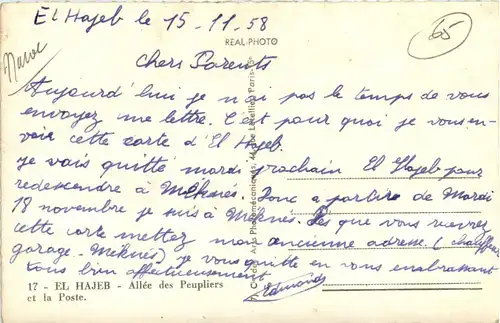 El Hajeb le 15-11-58
65
REAL-PHOTO
Maroc
chers Parents
Aujourd'hui je n'ai pas le temps de vous
envoyez me lettre. C'est pour quoi je vous en-
voie cette carte d'El Hajeb.
Je vais quitté mardi prochain El Hajeb pour
redescendre à Mèknés. Donc a partire de Mardi
18 novembre je suis à Mèknés. Dès que vous recevrez
cette carte mettez mon ancienne adresse. (chauffeur
garage - Mèknés) je vous quitte en vous enabrassant
tous bien affectueusement
Edmond
17 - EL HAJEB - Allée des Peupliers
et la Poste.